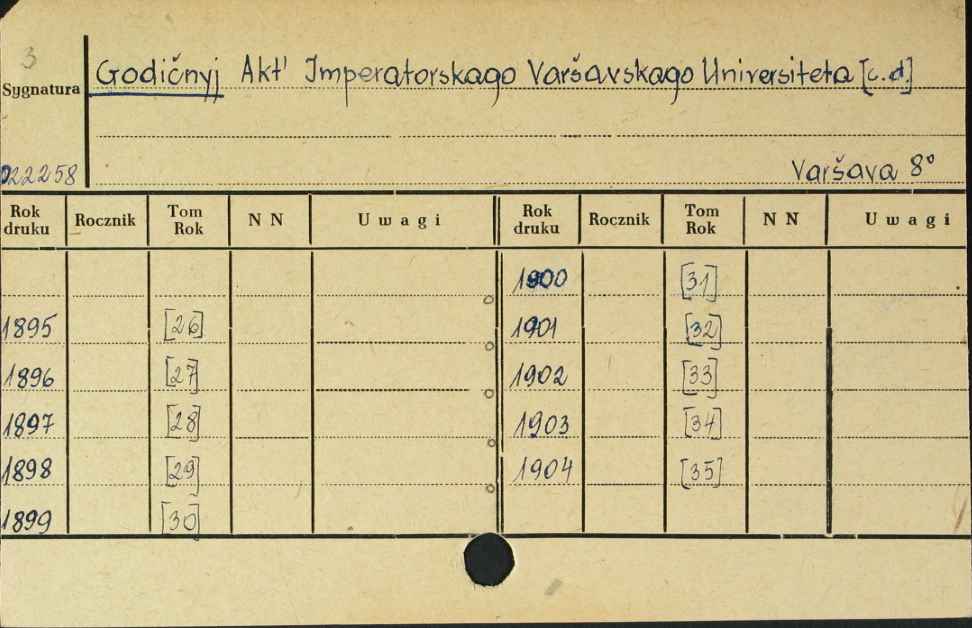 3
Godičnyj Akt' Imperatorskago Varšavskago Universiteta [c.d.]
Sygnatura
022258
Varšava 8°
Rok druku Rocznik Tom Rok N N Uwagi Rok druku Rocznik Tom Rok N N Uwagi
1900 [31]
1895 [26] 1901 [32]
1896 [27] 1902 [33]
1897 [28] 1903 [34]
1898 [29] 1904 [35]
1899 [30]